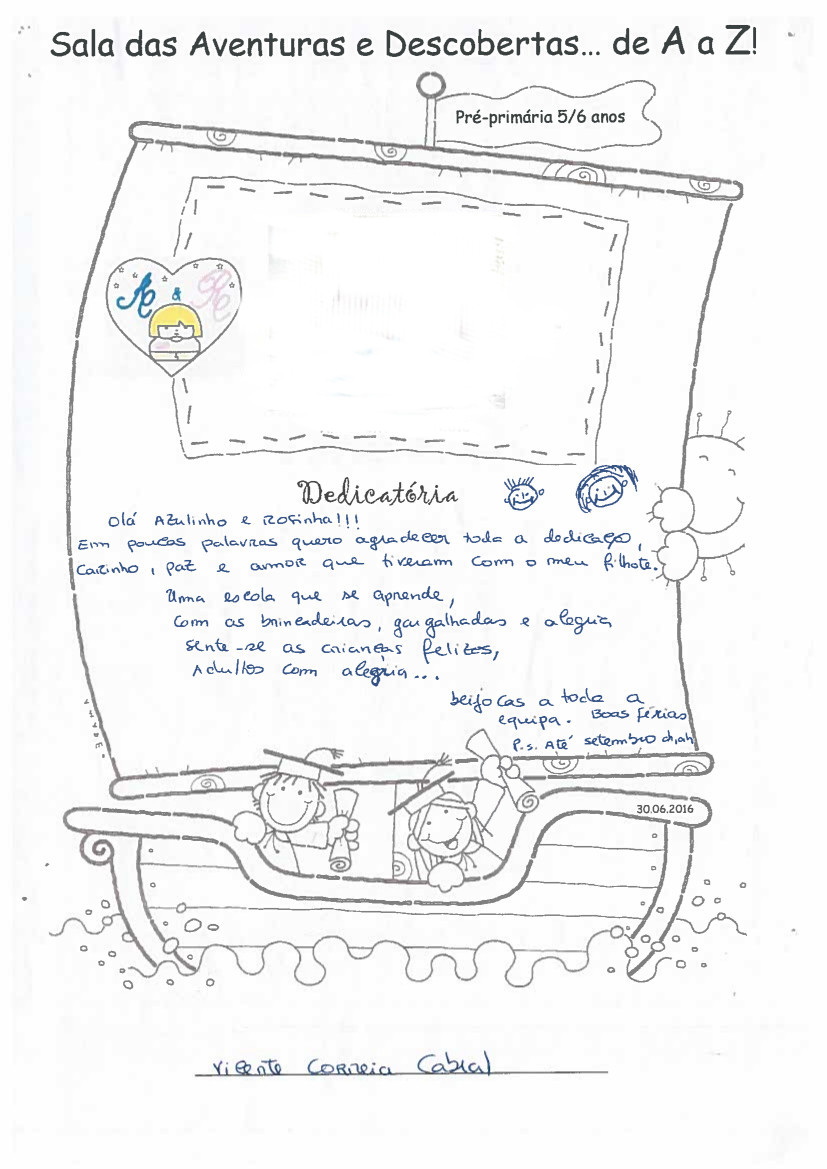 Sala das Aventuras e Descobertas... de A a Z!
Pré-primária 5/6 anos
&
Dedicatória
Olá Azulinho e Rosinha!!!
Em poucas palavras quero agradecer toda a dedicaço,
Carinho, paz e amor que tiveram com o meu filhote.
Uma escola que se aprende,
com as brincadeiras, gargalhadas e alegria
sente-se as crianças felizes,
Adultos com alegria...
beijocas a toda a
equipa. Boas férias
P.s. Até setembro ah,ah
30.06.2016
Vicente Correia Cabral